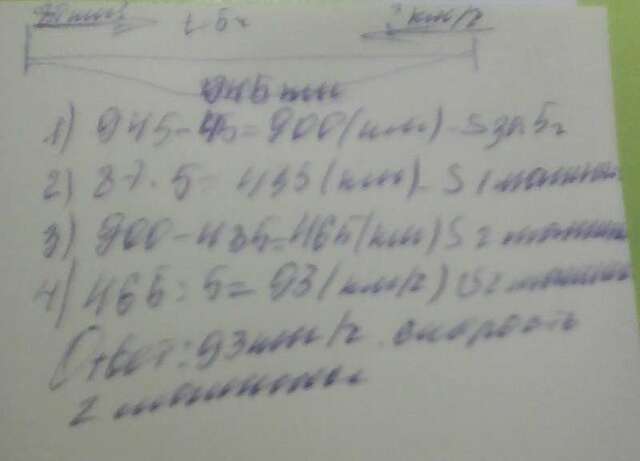 t 5ч ? км/ч
945 км
1) 945-45=900(км)-S за 5ч
2) 87·5=435(км)-S 1 машины
3) 900-435=465(км) S 2 машины
4) 465:5=93(км/ч) 2 машины
Ответ: 93 км/ч скорость
2 машины